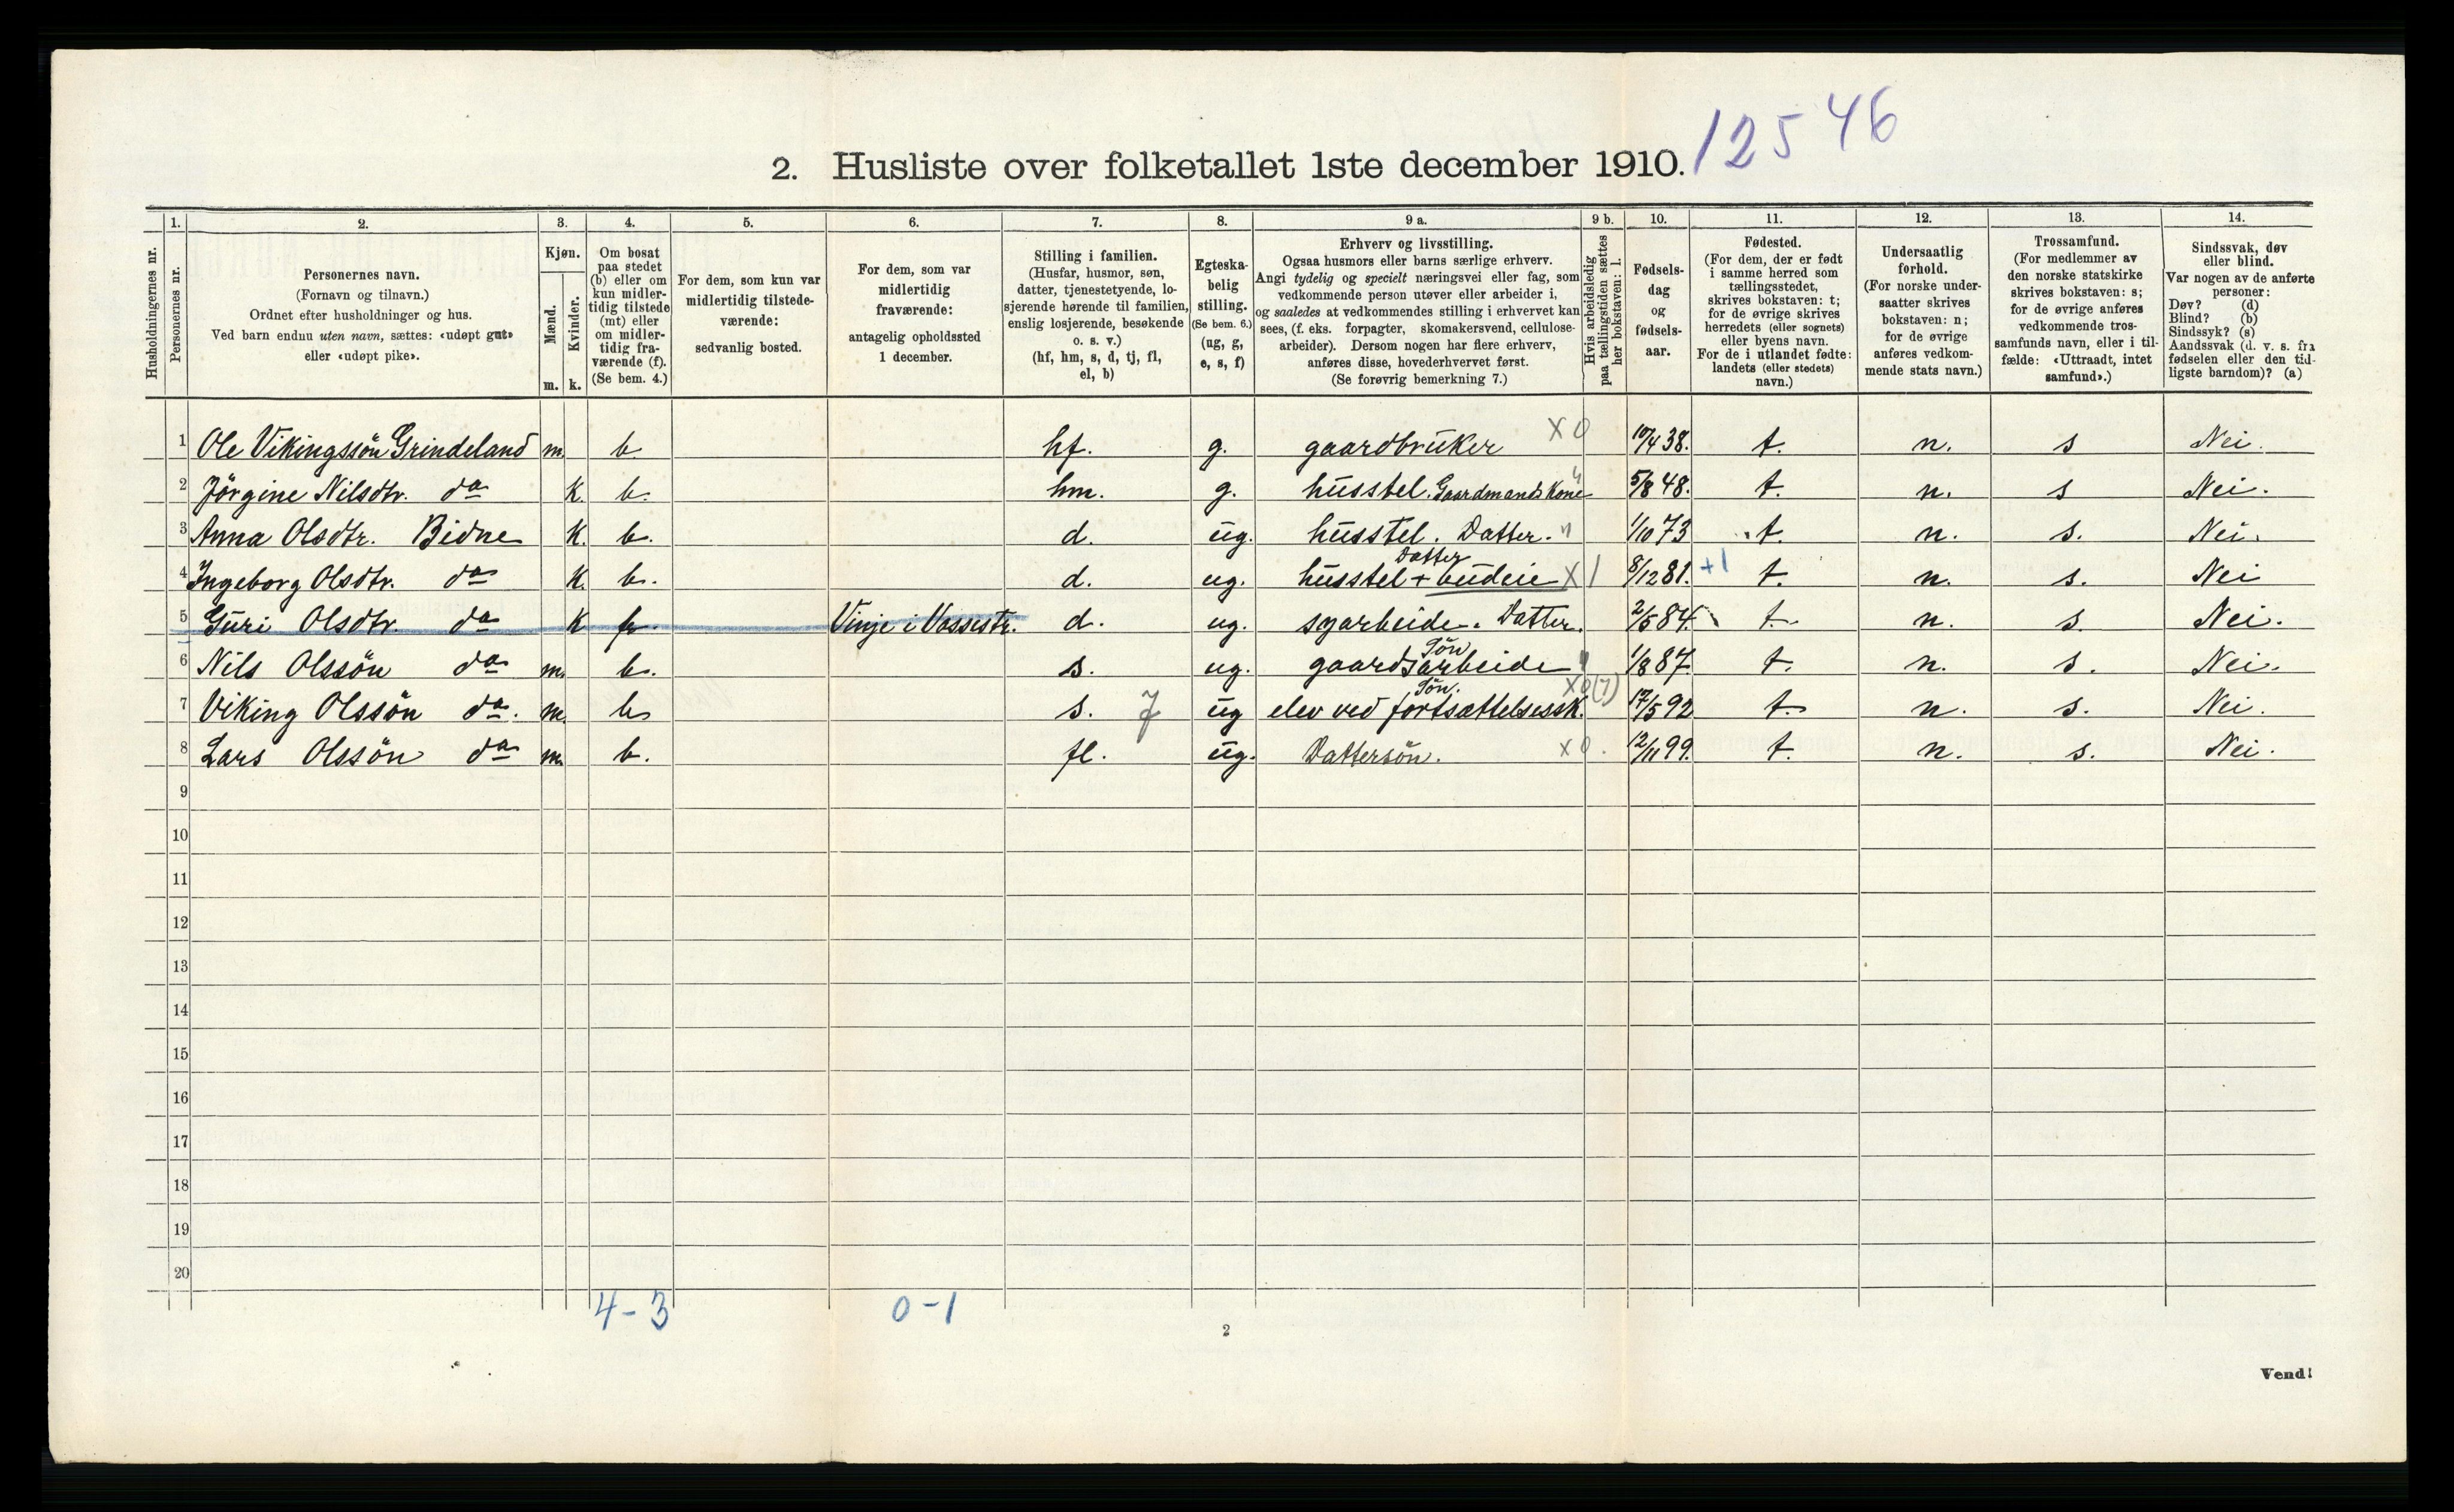 12546
2. Husliste over folketallet 1ste december 1910.
1. 2. 3. 4. 5. 6. 7. 8. 9 a. 9 b. 10. 11. 12. 13. 14.
Husholdningernes nr.
Personernes nr.
Personernes navn.
(Fornavn og tilnavn.)
Ordnet efter husholdninger og hus.
Ved barn endnu uten navn, sættes: «udøpt gut»
eller «udøpt pike».
Kjøn.
Mænd.
Kvinder.
m. k.
Om bosat
paa stedet
(b) eller om
kun midler-
tidig tilstede
(mt) eller
om midler-
tidig fra-
værende (f).
(Se bem. 4.)
For dem, som kun var
midlertidig tilstede-
værende:
sedvanlig bosted.
For dem, som var
midlertidig
fraværende:
antagelig opholdssted
1 december.
Stilling i familien.
(Husfar, husmor, søn,
datter, tjenestetyende, lo-
sjerende hørende til familien,
enslig losjerende, besøkende
o. s. v.)
(hf, hm, s, d, tj, fl,
el, b)
Egteska-
belig
stilling.
(Se bem. 6.)
(ug, g,
e, s, f)
Erhverv og livsstilling.
Ogsaa husmors eller barns særlige erhverv.
Angi tydelig og specielt næringsvei eller fag, som
vedkommende person utøver eller arbeider i,
og saaledes at vedkommendes stilling i erhvervet kan
sees, (f. eks. forpagter, skomakersvend, cellulose-
arbeider). Dersom nogen har flere erhverv,
anføres disse, hovederhvervet først.
(Se forøvrig bemerkning 7.)
Hvis arbeidsledig
paa tællingstiden sættes
her bokstaven: l.
Fødsels-
dag
og
fødsels-
aar.
Fødested.
(For dem, der er født
i samme herred som
tællingsstedet,
skrives bokstaven: t;
for de øvrige skrives
herredets (eller sognets)
eller byens navn.
For de i utlandet fødte:
landets (eller stedets)
navn.)
Undersaatlig
forhold.
(For norske under-
saatter skrives
bokstaven: n;
for de øvrige
anføres vedkom-
mende stats navn.)
Trossamfund.
(For medlemmer av
den norske statskirke
skrives bokstaven: s;
for de øvrige anføres
vedkommende tros-
samfunds navn, eller i til-
fælde: «Uttraadt, intet
samfund».)
Sindssvak, døv
eller blind.
Var nogen av de anførte
personer:
Døv? (d)
Blind? (b)
Sindssyk? (s)
Aandssvak (d. v. s. fra
fødselen eller den tid-
ligste barndom)? (a)
1 Ole Vikingssön Grindeland m. b. hf. g. gaardbruker X 0 10/4 38. t. n. s Nei.
2 Jörgine Nilsdtr. do K. b. hm. g. husstel. Gaardmands Kone " 5/8 48. t. n. s Nei.
3 Anna Olsdtr. Bidne K. b. d. ug. husstel. Datter. " 1/10 73 t. n. s. Nei.
Datter
4 Ingeborg Olsdtr. do K. b. d. ug. husstel + budeie X 1 8/12 81. +1 t. n. s. Nei
5 Guri Olsdtr. do K f. Vinje i Vossestr. d. ug. syarbeide. Datter. 2/5 84. t. n. s. Nei.
Sön
6 Nils Olssön do m. b. s. ug. gaardsarbeide " 1/8 87. t. n. s. Nei.
Sön.
7 Viking Olssön do. m. b s. 7 ug elev ved fortsættelsessk. X0(7) 17/5 92 t. n. s. Nei.
8 Lars Olssön do m. b. fl. ug. Dattersön. X0. 12/11 99. t. n. s. Nei.
9
10
11
12
13
14
15
16
17
18
19
20
4-3 0-1
2
Vend!